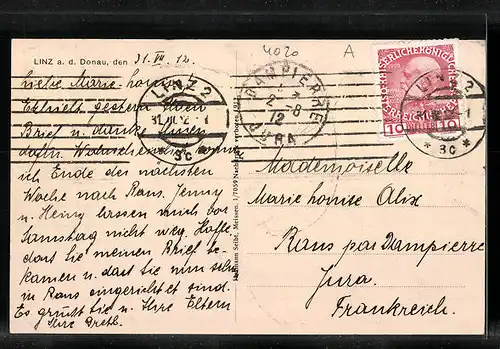 LINZ a. d. Donau, den 31. VII. 12.
4020
A
Liebe Marie-Louise!
Erhielt gestern Ihren
Brief u. danke Ihnen
dafür. Wahrscheinlich komme
ich Ende der nächsten
Woche nach Rans. Jenny
u. Heiny lassen mich vor
Samstag nicht weg. Hoffe
dass Sie meinen Brief be-
kamen u. dass Sie nun schon
in Rans eingerichtet sind.
Es grüßt Sie u. Ihre Eltern
Ihre Gretl.
Hermann Seibt, Meissen. 1/7059 Nachdruck verboten. 1912
LINZ 2
31. VII. 12
* 3c *
DAMPIERRE
2-8
12
JURA
KAIS. KÖNIGLICHE
10 10
LINZ 2
* 3c *
Mademoiselle
Marie Louise Alix
Rans par Dampierre
Jura.
Frankreich.